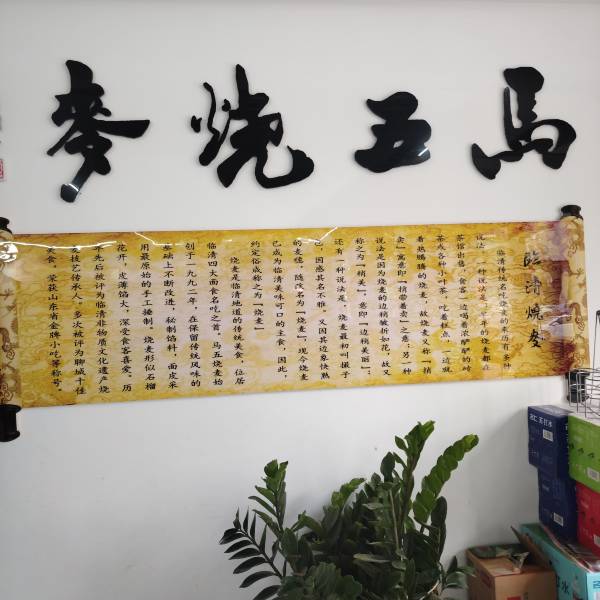 馬五烧麥
临清烧麦
临清传统名吃烧麦的来历有多种
说法，一种说法是，早年的烧麦都在
茶馆出售，食客一边喝着浓酽酽的砖
茶或各种小叶茶，吃着糕点，一边就
着热腾腾的烧麦，故烧麦又称“捎
卖”寓意即“捎带着卖”之意；另一种
说法是因为烧麦的边稍皱折如花，故又
称之为“稍美”，意即“边稍美丽”。
还有一种说法是，烧麦最初叫撮子
，因感其名不雅，又因其这象快熟
的麦穗，随改名为“烧麦”，现今烧麦
已成为临清美味可口的主食，因此，
约定俗成称之为“烧麦”
烧麦是临清地道的传统美食，位居
临清四大面食名吃之首，马五烧麦始
创于一九九二年，在保留传统风味的
基础上不断改进，秘制馅料，面皮采
用最原始的手工捶制，烧麦形似石榴
花开，皮薄馅大，深受食客喜爱。历
年先后被评为临清非物质文化遗产烧
麦技艺传承人。多次被评为聊城十佳
美食，荣获山东省金牌小吃等称号。